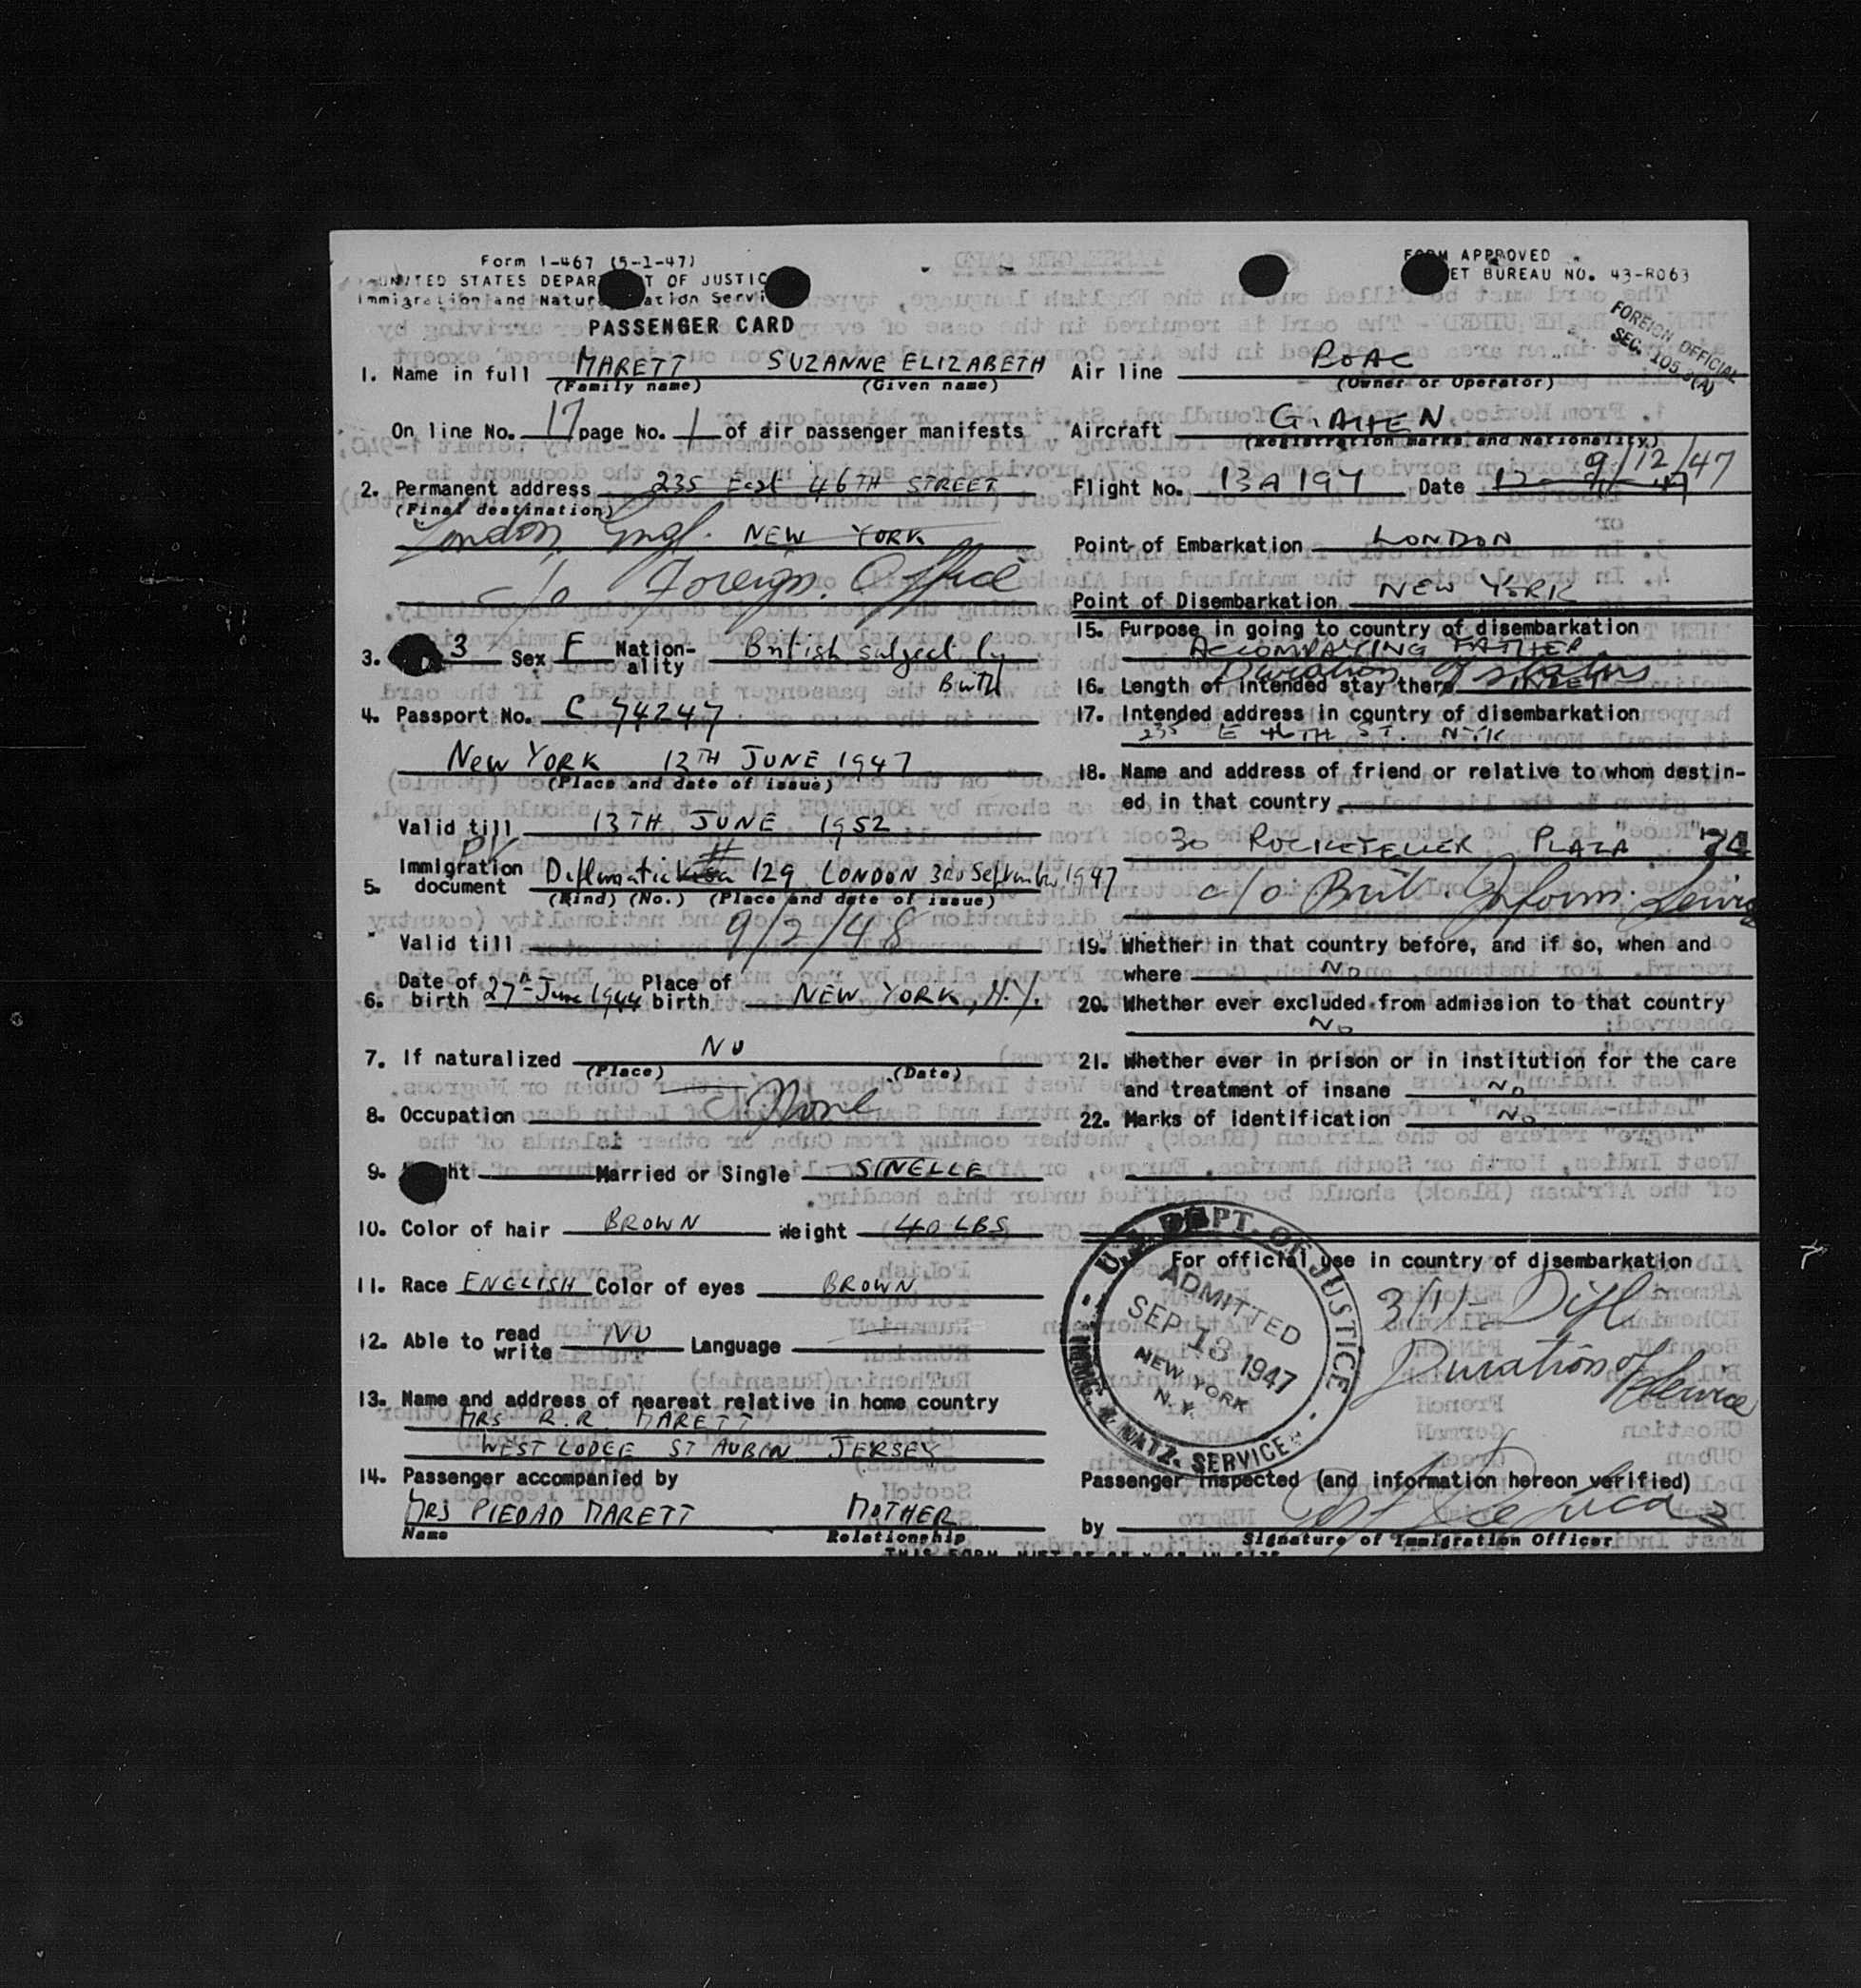 Form I-467 (5-1-47)
UNITED STATES DEPAR T OF JUSTIC
Immigration and Natur ation Servi
PASSENGER CARD
FORM APPROVED
ET BUREAU NO. 43-R063
FOREIGN OFFICIAL
SEC. 105.3(A)
1. Name in full MARETT SUZANNE ELIZABETH
(Family name) (Given name)
On line No. 17 page No. 1 of air passenger manifests
2. Permanent address 235 East 46TH STREET
(Final destination)
London, Engl. NEW YORK
c/o Foreign Office
3. 3 Sex F Nation-ality British subject by
Birth
4. Passport No. C 74247
NEW YORK 12TH JUNE 1947
(Place and date of issue)
Valid till 13TH JUNE 1952
PV
5. Immigration document Diplomatic Visa 129 LONDON 3RD September 1947
(Kind) (No.) (Place and date of issue)
Valid till 9/2/48
6. Date of birth 27th June 1944 Place of birth NEW YORK, N.Y.
7. If naturalized NO
(Place) (Date)
8. Occupation None
9. ht Married or Single SINGLE
10. Color of hair BROWN Weight 40 LBS
11. Race ENGLISH Color of eyes BROWN
12. Able to read write NO Language
13. Name and address of nearest relative in home country
MRS R.R MARETT
WEST LODGE ST AUBIN JERSEY
14. Passenger accompanied by
MRS PIEDAD MARETT MOTHER
Name Relationship
Air line BOAC
(Owner or Operator)
Aircraft G. AHEN
(Registration marks and Nationality)
9/12/47
Flight No. 13A197 Date
Point of Embarkation LONDON
Point of Disembarkation NEW YORK
15. Purpose in going to country of disembarkation
ACCOMPANYING FATHER
Duration of status
16. Length of intended stay there
17. Intended address in country of disembarkation
235 E 46TH ST. N.YK
18. Name and address of friend or relative to whom destin-
ed in that country
30 ROCKEFELLER PLAZA
c/o Brit. Inform. Service
19. Whether in that country before, and if so, when and
where No
20. Whether ever excluded from admission to that country
No
21. Whether ever in prison or in institution for the care
and treatment of insane No
22. Marks of identification No
For official use in country of disembarkation
3/1/- Dipl
Duration of Service
U.S. DEPT. OF JUSTICE
ADMITTED
SEP 13 1947
NEW YORK
N. Y.
IMMIG. & NATZ. SERVICE
Passenger inspected (and information hereon verified)
by
Signature of Immigration Officer